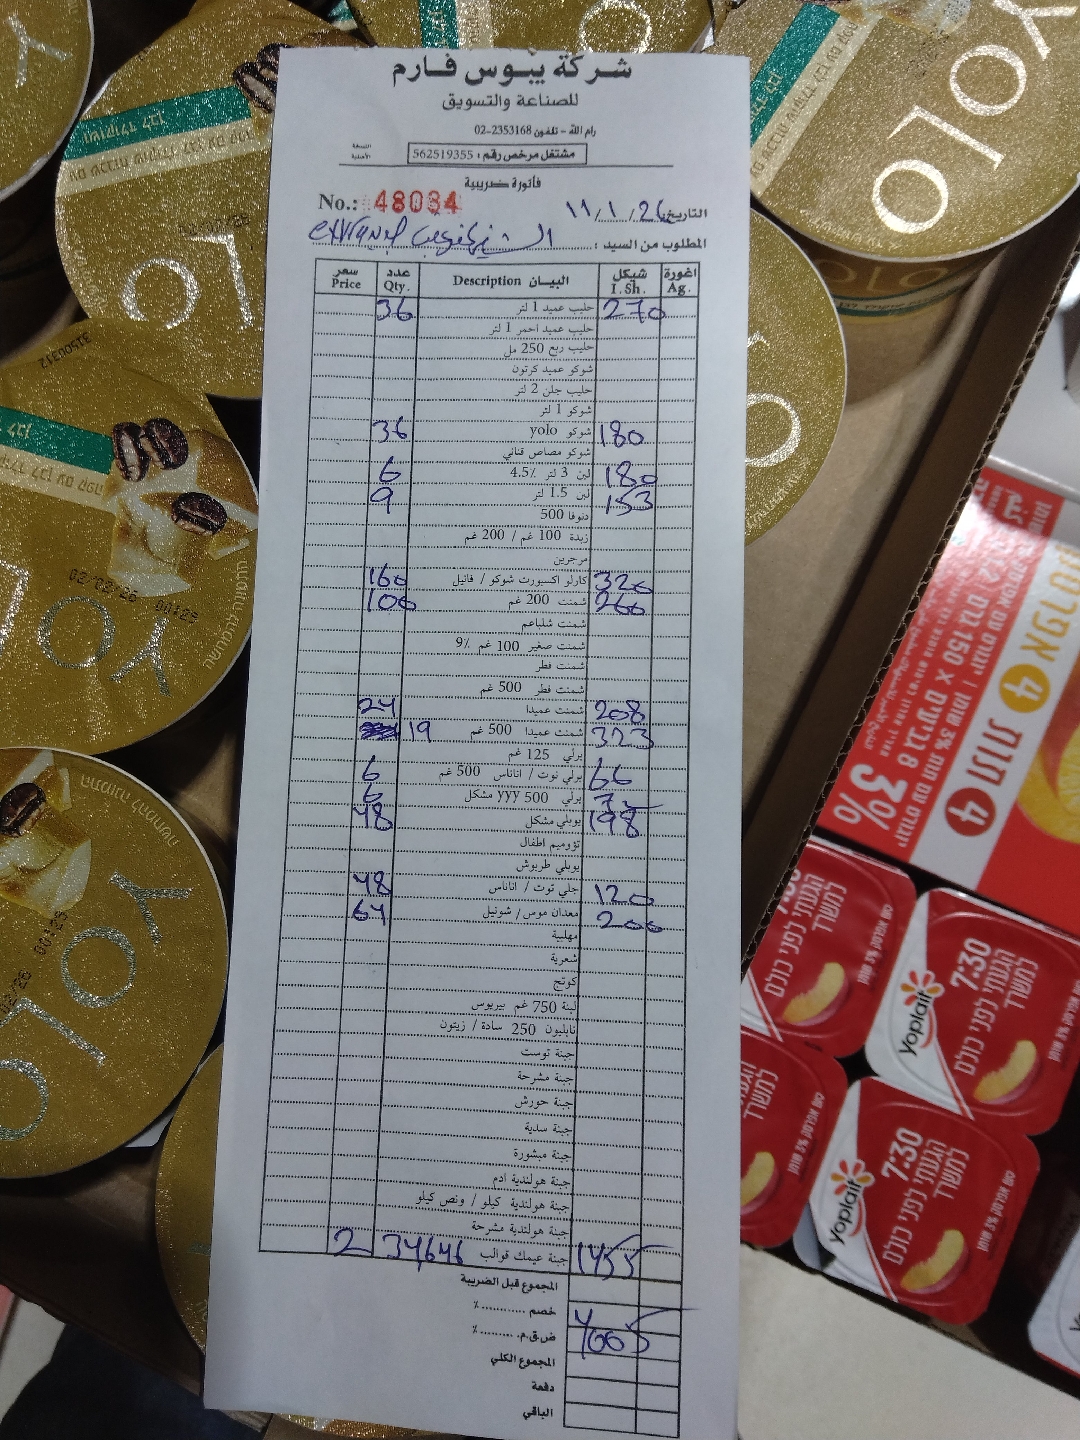 شركة يبوس فارم
للصناعة والتسويق
رام الله - تلفون 2353168-02
مشتغل مرخص رقم : 562519355
النسخة الأصلية
فاتورة ضريبية
No.: 48034
التاريخ: 11/1/26
المطلوب من السيد :
سعر Price عدد Qty. البيان Description شيكل I.Sh. اغورة Ag.
36 حليب عميد 1 لتر 270
حليب عميد احمر 1 لتر
حليب ربع 250 مل
شوكو عميد كرتون
حليب جلن 2 لتر
شوكو 1 لتر
36 شوكو yolo 180
شوكو مصاص قناني
6 لبن 3 لتر 4.5٪ 180
9 لبن 1.5 لتر 153
دنوفا 500
زبدة 100 غم / 200 غم
مرجرين
160 كارلو اكسبورت شوكو / فانيل 320
100 شمنت 200 غم 260
شمنت شلباعم
شمنت صغير 100 غم 9٪
شمنت فطر
شمنت فطر 500 غم
24 شمنت عميدا 208
19 شمنت عميدا 500 غم 323
برلي 125 غم
6 برلي توت / اناناس 500 غم 66
6 برلي yyy 500 مشكل 72
48 يوبلي مشكل 198
تؤوميم اطفال
يوبلي طربوش
48 جلي توت / اناناس 120
64 معدان موس / شونيل 200
مهلبية
شعرية
كوتج
لبنة 750 غم بيريوس
نابليون 250 سادة / زيتون
جبنة توست
جبنة مشرحة
جبنة حورش
جبنة سدية
جبنة مبشورة
جبنة هولندية ادم
جبنة هولندية كيلو / ونص كيلو
جبنة هولندية مشرحة
2 34,646 جبنة عيمك قوالب 1455
المجموع قبل الضريبة
خصم ............ ٪
ض.ق.م. ......... ٪ 4005
المجموع الكلي
دفعة
الباقي
YOLO
02/02/26 00:25
Yoplait
7:30
הגעתי לפני כולם
למשרד
4 אפרסק
4 תות
8 גביעים × 150
3%